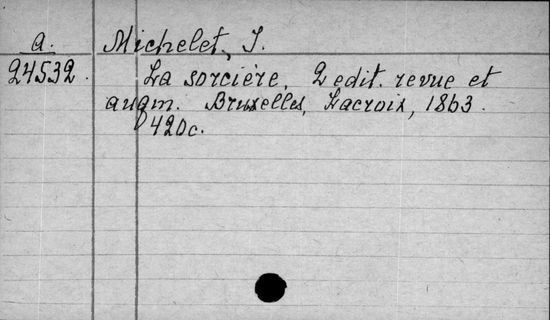 a. Michelet, J.
24532. La sorcière, 2 edit. revue et
augm. Bruxelles, Lacroix, 1863.
420c.